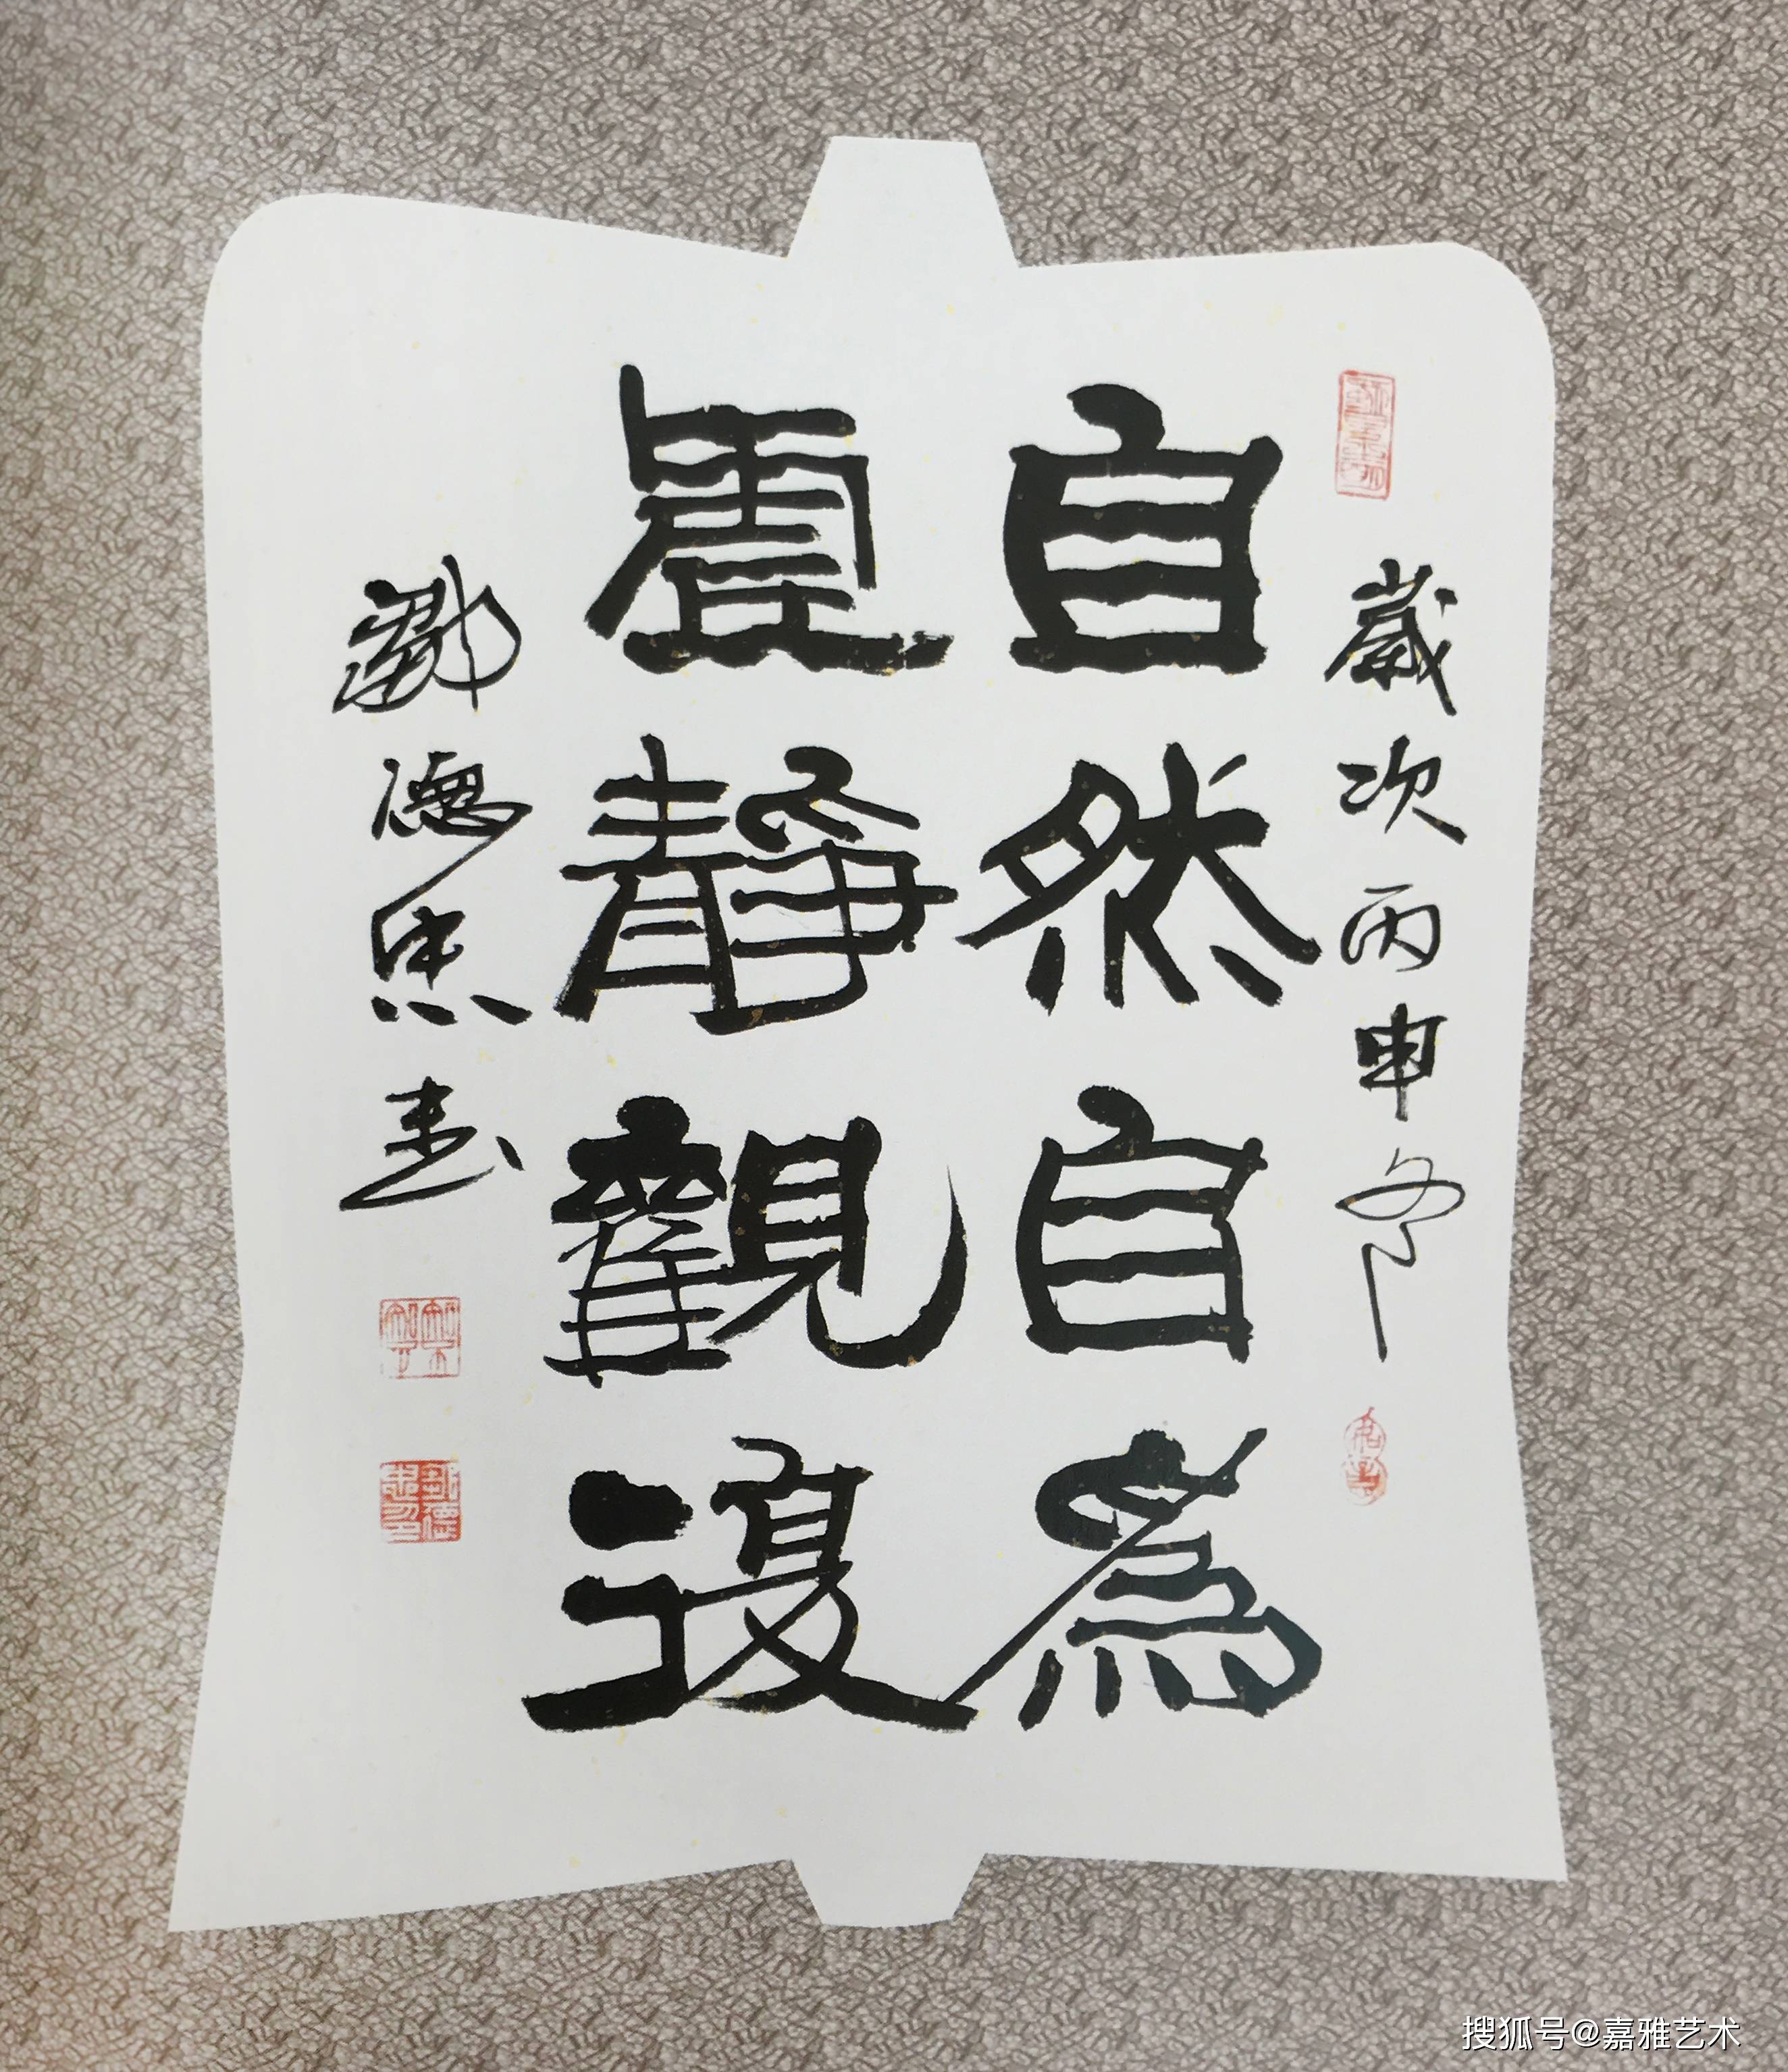 歲次丙申冬
自然自為
虛靜觀復
鄒德忠書
搜狐号@嘉雅艺术